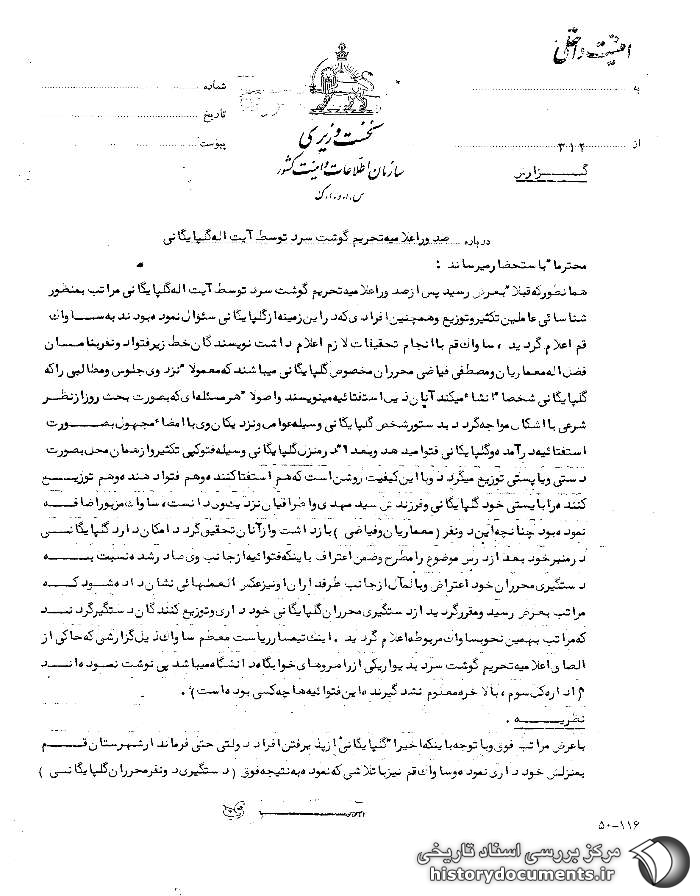 امنیت داخلی
به
شماره
تاریخ
از ۳۱۲
پیوست
نخست وزیری
سازمان اطلاعات و امنیت کشور
س.ا.و.ا.ک
گزارش
درباره صدور اعلامیه تحریم گوشت سرد توسط آیت اله گلپایگانی
محترما" باستحضار میرساند :
همانطور که قبلا" بعرض رسید پس از صدور اعلامیه تحریم گوشت سرد توسط آیت اله گلپایگانی مراتب بمنظور
شناسائی عاملین تکثیر و توزیع و همچنین افرادی که در این زمینه از گلپایگانی سئوال نموده بودند به ساواک
قم اعلام گردید ، ساواک قم با انجام تحقیقات لازم اعلام داشت نویسندگان خط زیر فتوا دو نفر بنامان
فضل اله معماریان و مصطفی فیاضی محرران مخصوص گلپایگانی میباشند که معمولا" نزد وی جلوس و مطالبی را که
گلپایگانی شخصا" انشاء میکند آنان ذیل استفتائیه مینویسند و اصولا" هر مسئله ای که بصورت بحث روز از نظر
شرعی با اشکال مواجه گردد بدستور شخص گلپایگانی وسیله عوامل و نزدیکان وی با امضاء مجهول بصورت
استفتائیه درآمده و گلپایگانی فتوا میدهد و بعدا" در منزل گلپایگانی وسیله فتوکپی تکثیر و از همان محل بصورت
دستی و یا پستی توزیع میگردد و با این کیفیت روشن است که هم استفتا کننده و هم فتوا دهنده و هم توزیع
کننده را بایستی خود گلپایگانی و فرزندش سید مهدی و اطرافیان نزدیک وی دانست ، ساواک مزبور اضافه
نموده بود چنانچه این دو نفر ( معماریان و فیاضی ) بازداشت و از آنان تحقیق گردد امکان دارد گلپایگانی
در منبر خود بعد از درس موضوع را مطرح و ضمن اعتراف باینکه فتوائیه از جانب وی صادر شده نسبت به
دستگیری محرران خود اعتراض و بالمآل از جانب طرفداران او نیز عکس العملهائی نشان داده شود که
مراتب بعرض رسید و مقرر گردید از دستگیری محرران گلپایگانی خودداری و توزیع کنندگان دستگیر گردند
که مراتب بهمین نحو بساواک مربوطه اعلام گردید . اینک تیمسار ریاست معظم ساواک ذیل گزارشی که حاکی از
الصاق اعلامیه تحریم گوشت سرد بدیوار یکی از راهروهای خوابگاه دانشگاه میباشد پی نوشت نموده اند
( اداره کل سوم ، بالاخره معلوم نشد گیرنده این فتوائیه ها چه کسی بوده است ) .
نظریه .
با عرض مراتب فوق و با توجه باینکه اخیرا" گلپایگانی از پذیرفتن افراد دولتی حتی فرماندار شهرستان قم
بمنزلش خودداری نموده و ساواک قم نیز با تلاشی که نموده به نتیجه فوق ( دستگیری دو نفر محرران گلپایگانی )
۵۰-۱۱۶
مرکز بررسی اسناد تاریخی
historydocuments.ir